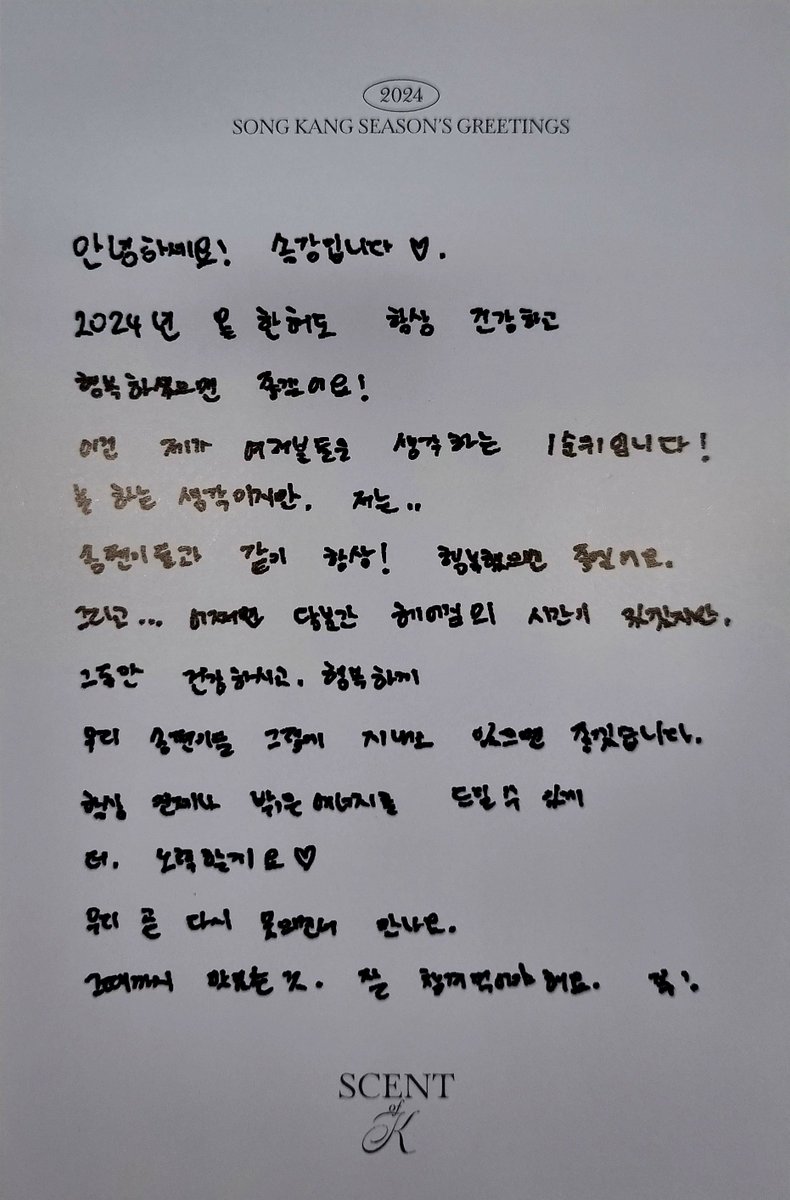 2024
SONG KANG SEASON'S GREETINGS
안녕하세요! 송강입니다♡.
2024년 올 한해도 항상 건강하고
행복하셨으면 좋겠어요!
이건 제가 여러분들은 생각하는 1순위입니다!
늘 하는 생각이지만, 저는..
송편이들과 같이 항상! 행복했으면 좋겠어요.
그리고... 어쩌면 당분간 헤어짐의 시간이 있겠지만,
그동안 건강하시고, 행복하게
우리 송편이들 그렇게 지내고 있으면 좋겠습니다.
항상 언제나 밝은 에너지를 드릴 수 있게
더. 노력할게요♡
우리 곧 다시 웃으면서 만나요.
그때까지 맛있는 것. 잘 챙겨먹어야 해요. 꼭!
SCENT
of
K